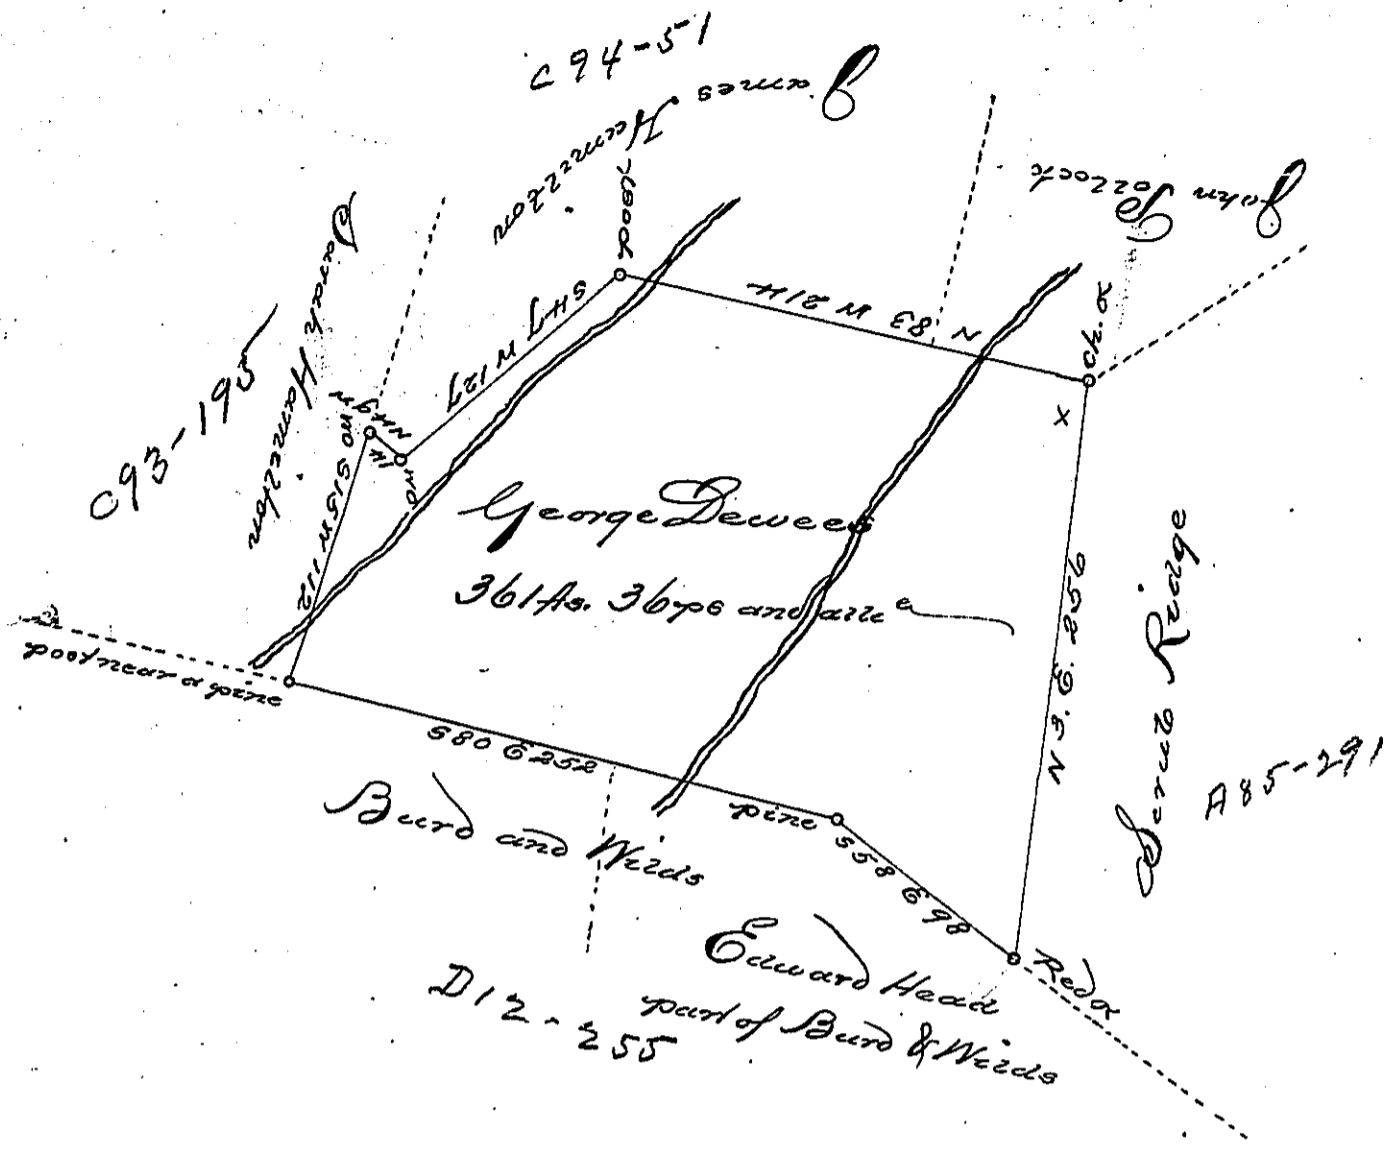 C 94-51
James Hamilton
John Pollock
C93-195
Sarah Hamelton
post
S47 W 127
N 83 W 214
ch. o
X
N49W
14
wo
wo
S15W 112
George Dewees
361 As. 36 ps and allce
N 3. E. 256
Serub Ridge
A85-291
post near a pine
S80 E 252
pine
S58 E 98
Burd and Wilds
Edward Head
part of Burd & Wilds
Red o
D12-255